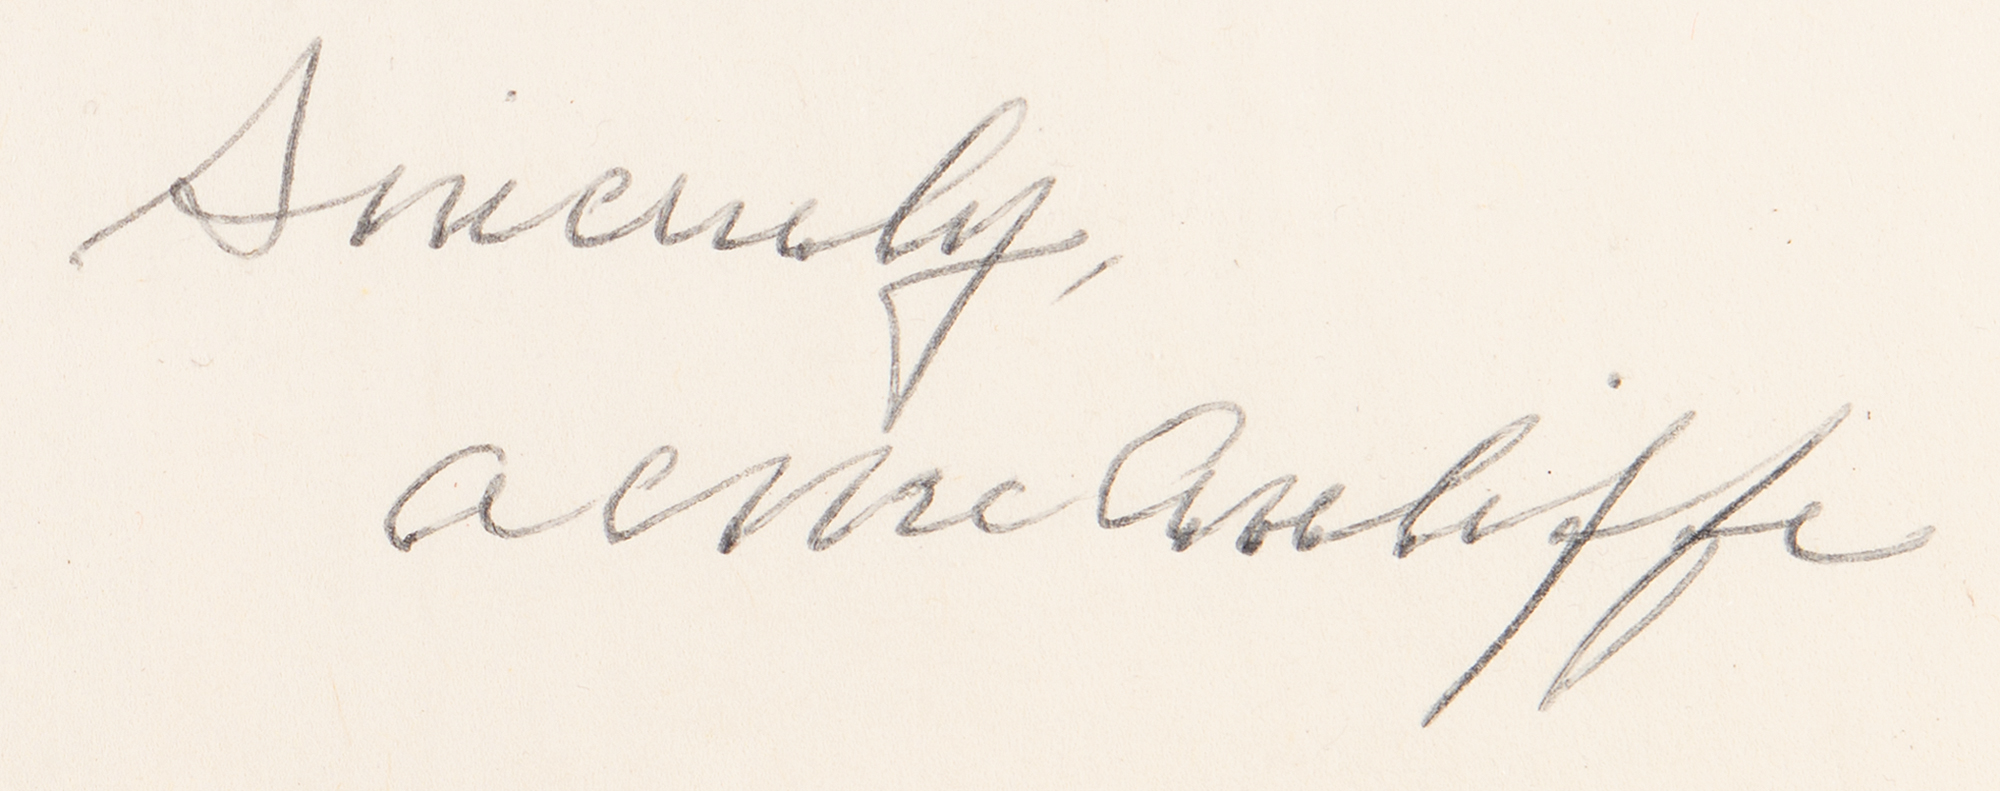 Sincerely,
A C McAuliffe